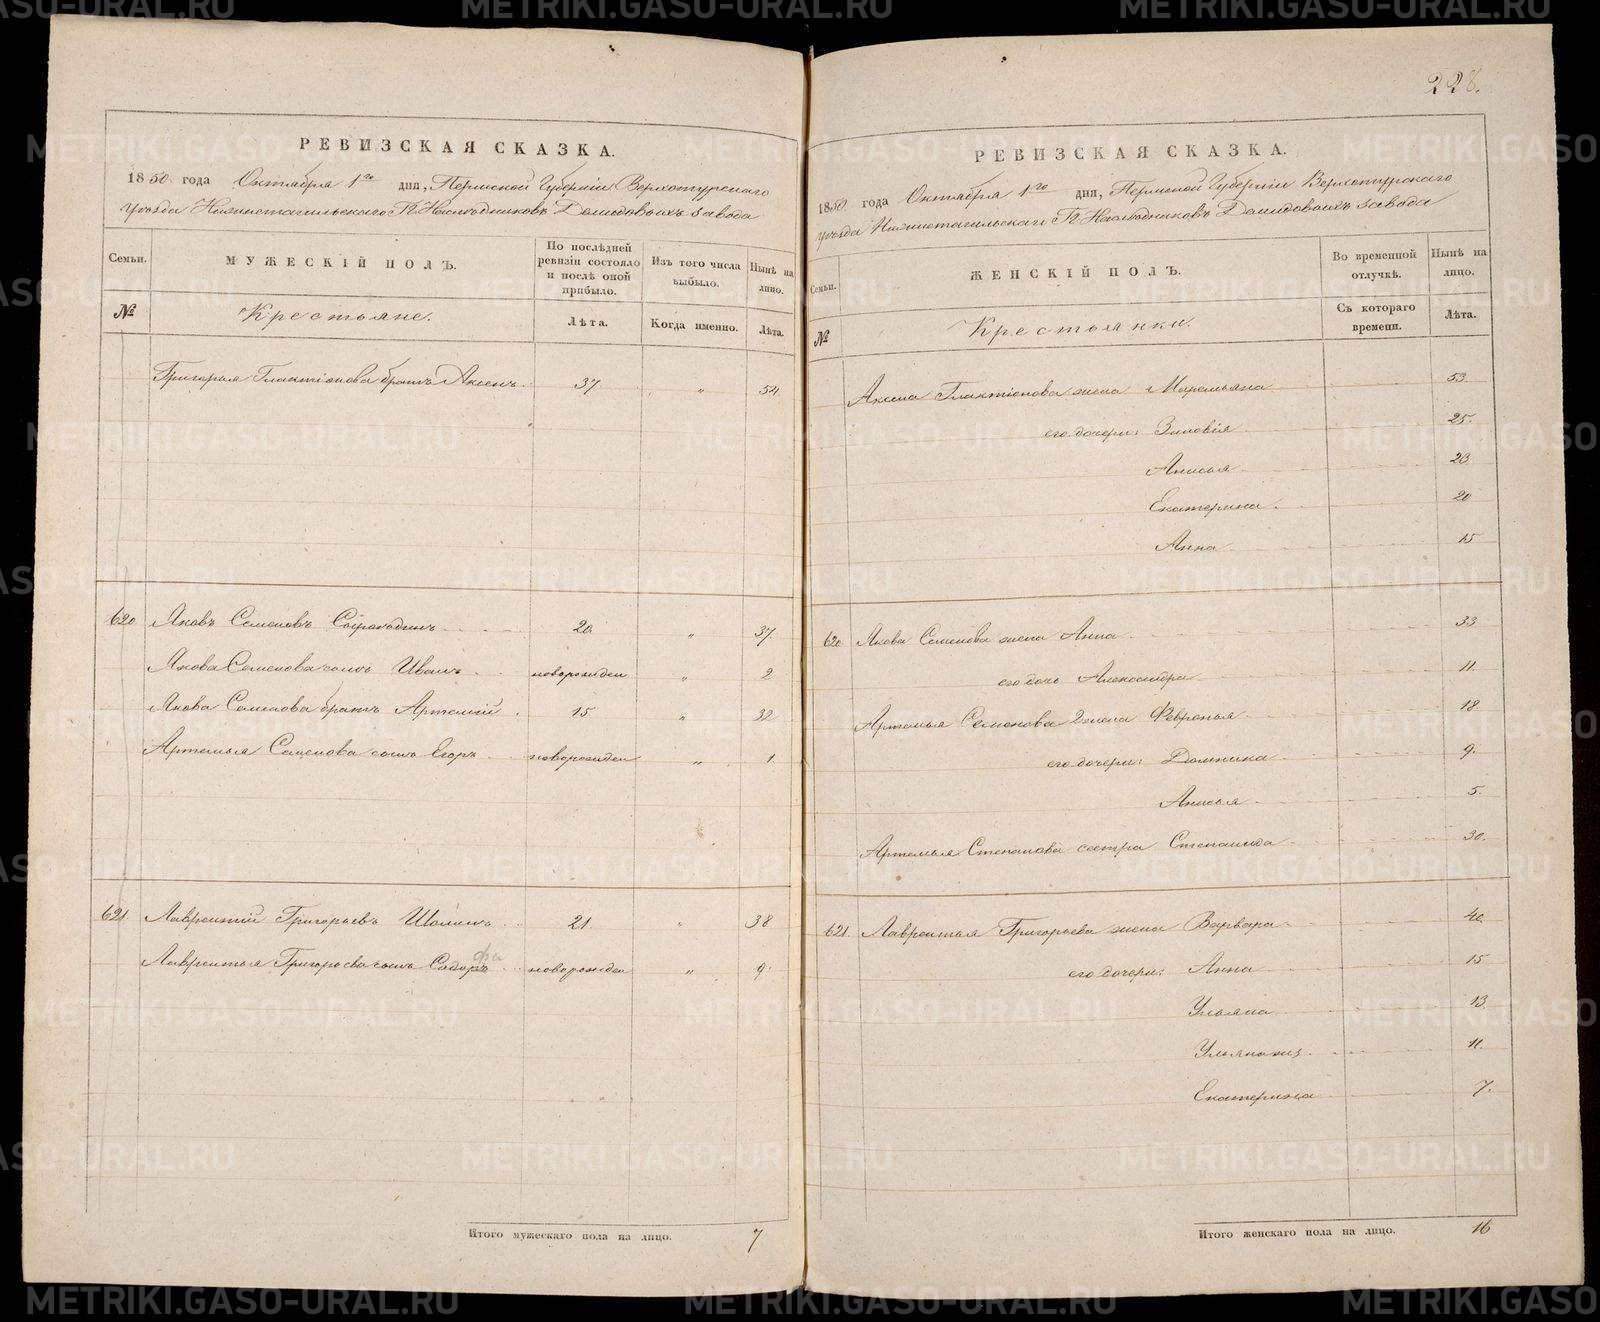 228.
РЕВИЗСКАЯ СКАЗКА.
1850 года Октября 1го дня, Пермской Губерніи Верхотурскаго
уѣзда Нижнетагильскаго Гг. Наслѣдниковъ Демидовыхъ завода
Семьи.
МУЖЕСКІЙ ПОЛЪ.
По послѣдней ревизіи состояло и послѣ оной прибыло.
Изъ того числа выбыло.
Нынѣ на лицо.
№
Крестьяне.
Лѣта.
Когда именно.
Лѣта.
Григорья Галактіонова братъ Аксенъ 37 " 54
620 Яковъ Семеновъ 20 " 37.
Якова Семенова сынъ Иванъ новорожден " 2
Якова Семенова братъ Артемій 15 " 32
Артемья Семенова сынъ Егоръ новорожден " 1
621 Лаврентій Григорьевъ 21 " 38
Лаврентья Григорьева сынъ новорожден " 9
Итого мужескаго пола на лицо. 7
РЕВИЗСКАЯ СКАЗКА.
1850 года Октября 1го дня, Пермской Губерніи Верхотурскаго
уѣзда Нижнетагильскаго Гг. Наслѣдниковъ Демидовыхъ завода
Семьи.
ЖЕНСКІЙ ПОЛЪ.
Во временной отлучкѣ.
Нынѣ на лицо.
№
Крестьянки.
Съ котораго времени.
Лѣта.
Аксена Галактіонова жена Маремьяна 53
его дочери: Зиновія 25.
Анисья 23
Екатерина 20
Анна 15
620 Якова Семенова жена Анна 33
его дочь Александра 11.
Артемья Семенова 2 жена Февронья 18
его дочери: Домника 9.
Анисья 5.
Артемья Степанова сестра Степанида 30.
621. Лаврентья Григорьева жена Варвара 40
его дочери: Анна 15
Ульяна 13
11.
Екатерина 7.
Итого женскаго пола на лицо. 16
METRIKI.GASO-URAL.RU